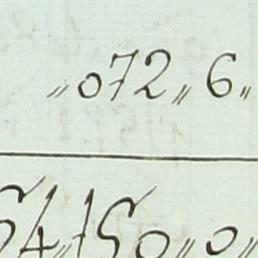 „072„6„
54„150„0„